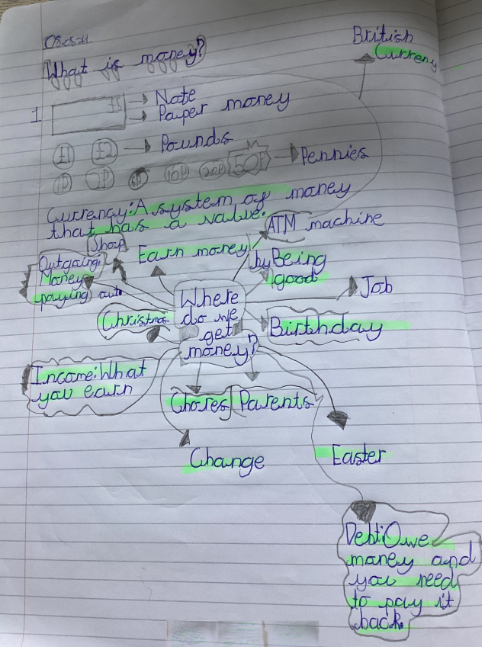 What is money?
British
Currency
1
Note
Paper money
£1 £2 Pounds
1p 2p 10p 20p 50p Pennies
Currency: A system of money
that has a value.
ATM machine
Shop
Earn money
Outgoing:
Money
paying out
by Being
good
Job
Where
do we
get
money?
Christmas
Birthday
Income: What
you earn
Chores
Parents
Change
Easter
Debt: Owe
money and
you need
to pay it
back.